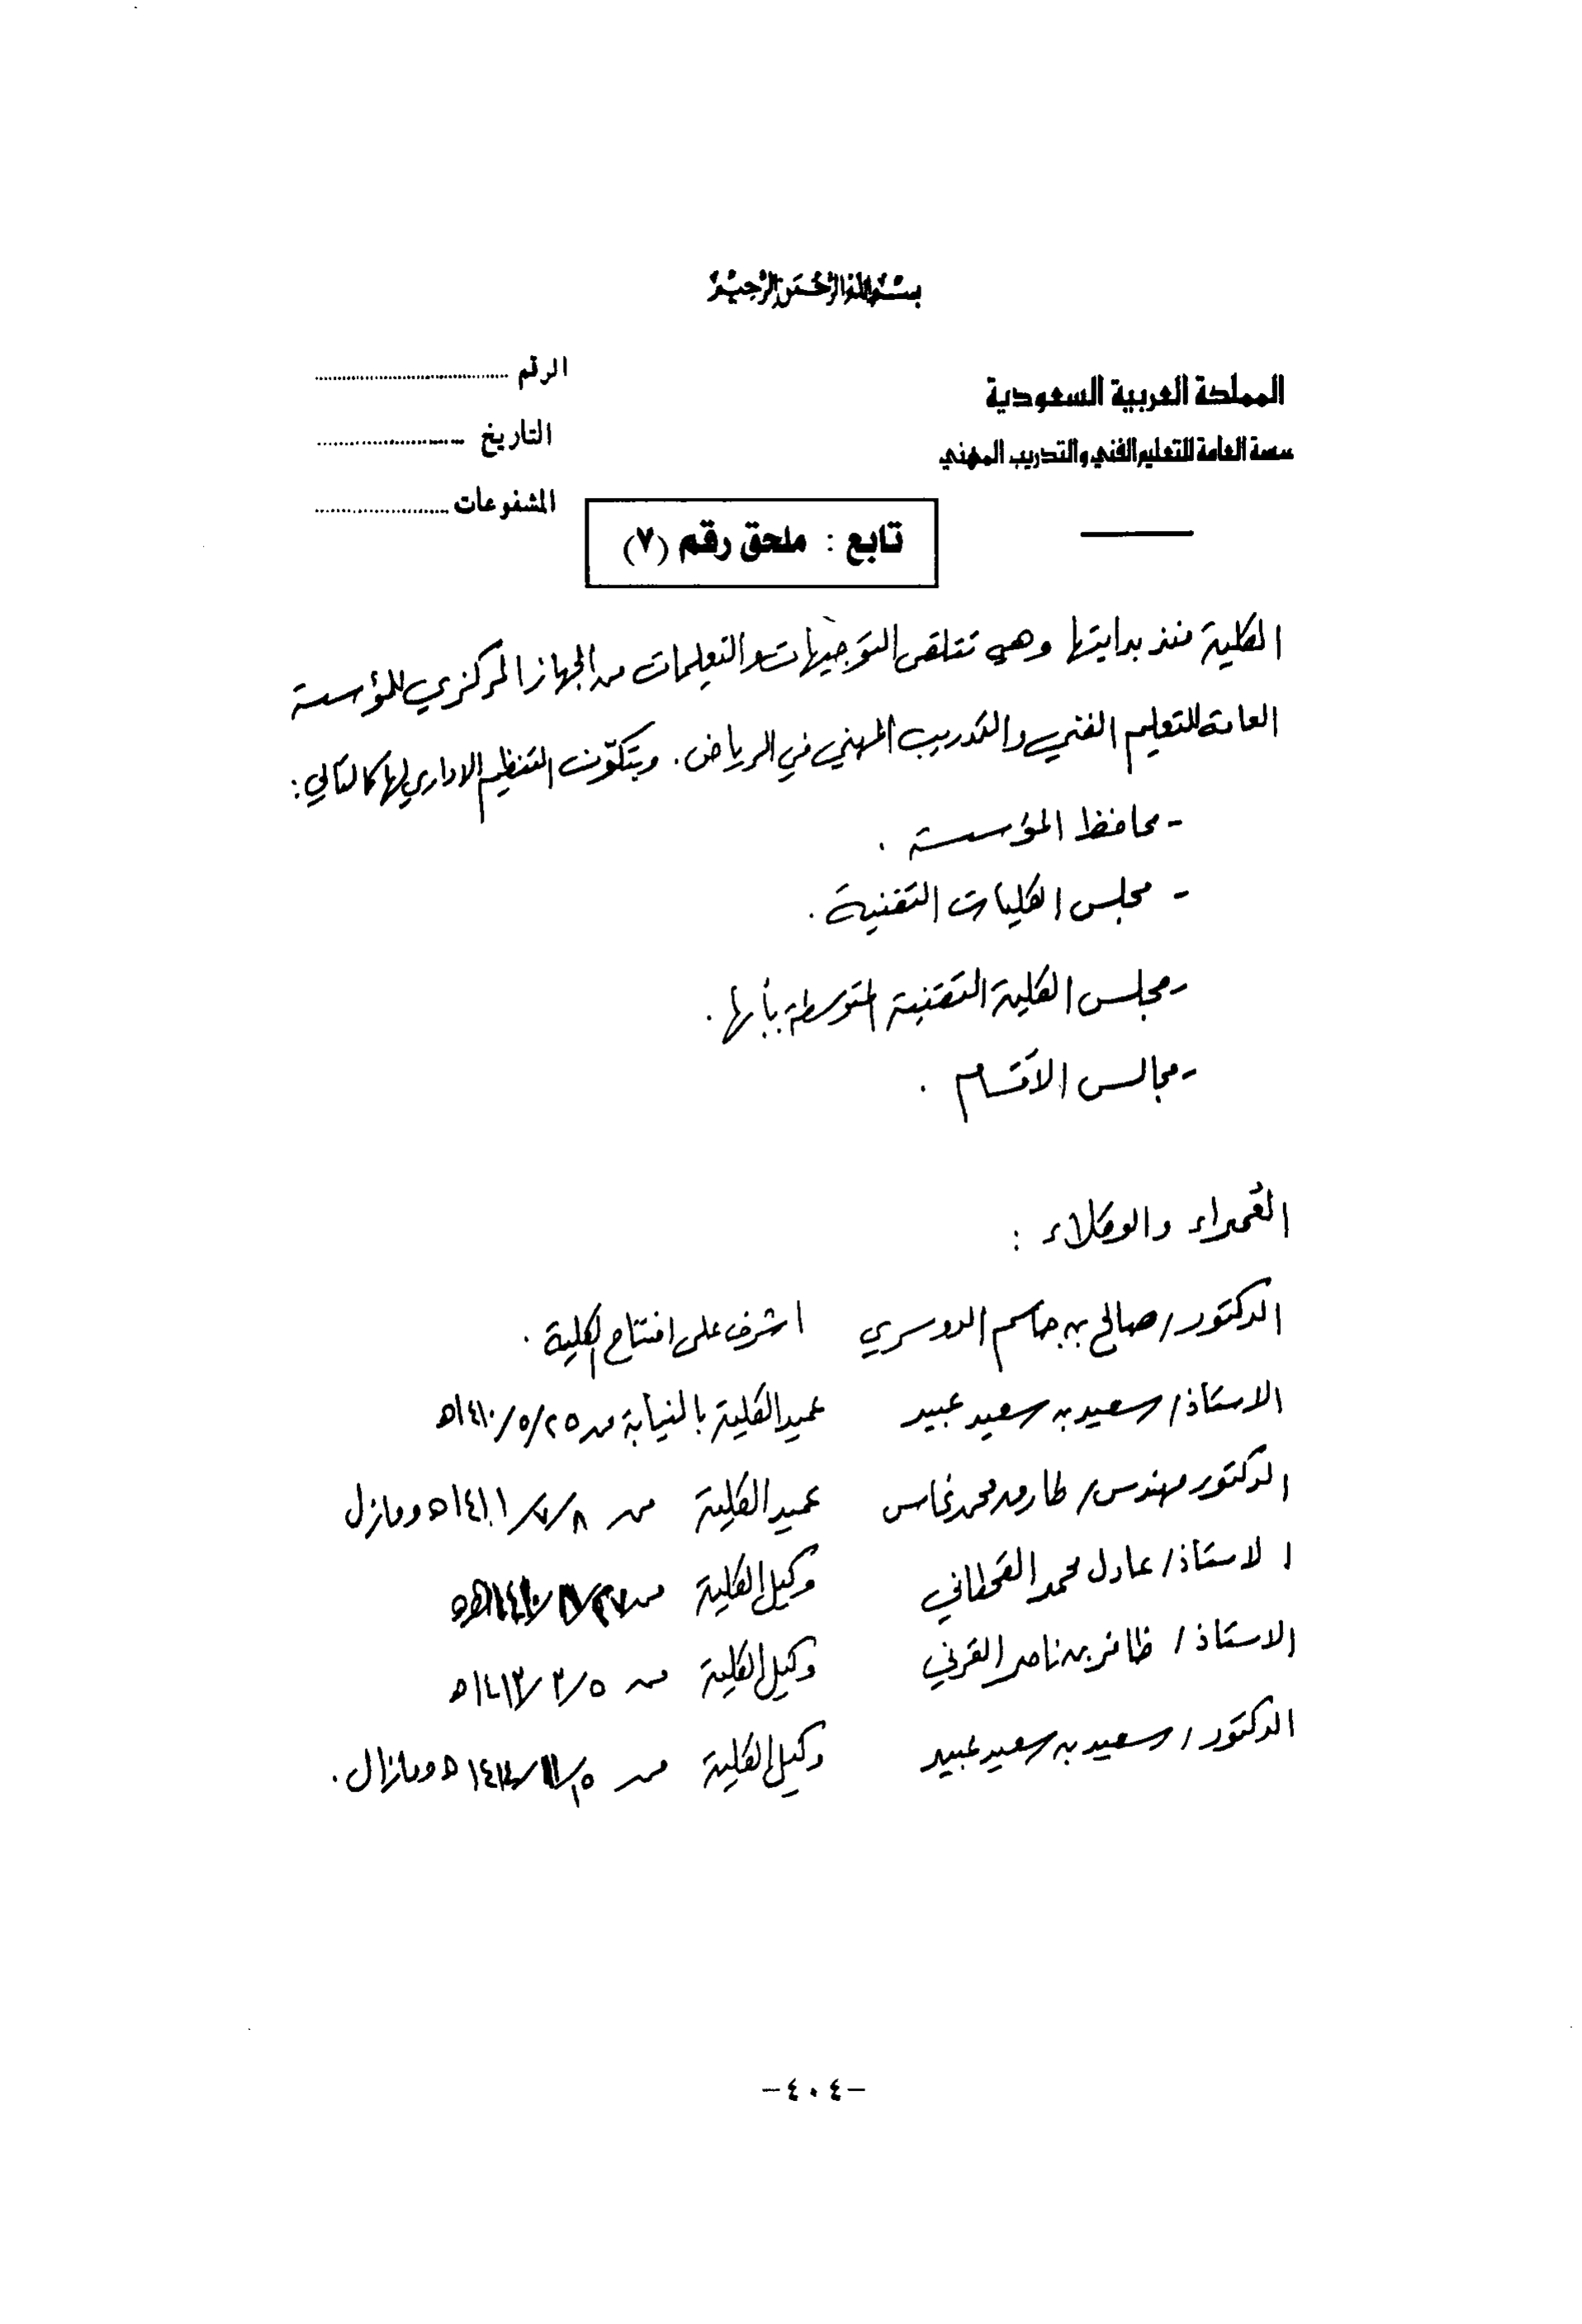 بسم الله الرحمن الرحيم
المملكة العربية السعودية
سسة العامة للتعليم الفني والتدريب المهني
الرقم ..........
التاريخ ..........
المشفوعات ..........
تابع : ملحق رقم (٧)
الكلية منذ بدايتها وهي تتلقى التوجيهات والتعليمات من الجهاز المركزي للمؤسسة
العامة للتعليم الفني والتدريب المهني في الرياض . ويتكوّن التنظيم الاداري لها كالتالي :
- محافظ المؤسسة .
- مجلس الكليات التقنية .
- مجلس الكلية التقنية المتوسطة بأبها .
- مجالس الأقسام .
العُمداء والوكلاء :
الدكتور / صالح بن جاسم الدوسري اشرف على افتتاح الكلية .
الاستاذ / سعيد بن سعيد عبيد عميد الكلية بالنيابة من ٢٥/٥/١٤١٠هـ
الدكتور مهندس / طارق محمد نحاس عميد الكلية من ٨/٧/١٤١١هـ ومازل
الاستاذ / عادل محمد القحطاني وكيل الكلية من
الاستاذ / ظافر بن ناصر القرني وكيل الكلية من ٥/٣/١٤١٣هـ
الدكتور / سعيد بن سعيد عبيد وكيل الكلية من ومازال .
-٤٠٤-